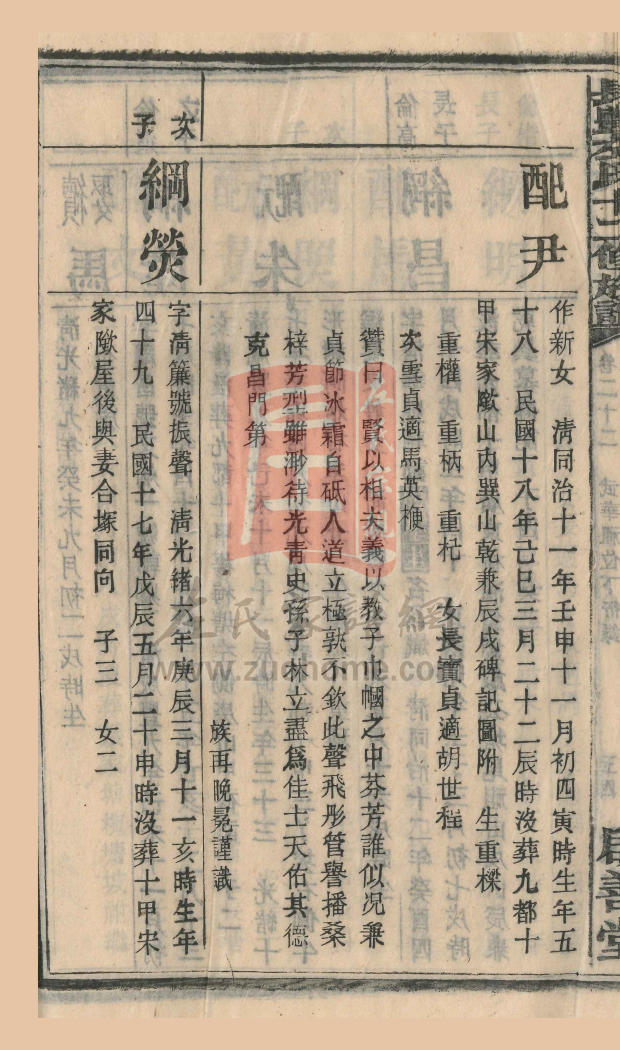 配尹
作新女 清同治十一年壬申十一月初四寅時生年五
十八 民國十八年己巳三月二十二辰時沒葬九都十
甲宋家歐山內巽山乾兼辰戌碑記圖附 生重樑
重權 重柄 重杞 女長寶貞適胡世程
次雪貞適馬英楩
贊曰 賢以相夫義以教子巾幗之中芬芳誰似況兼
貞節冰霜自砥人道立極孰不欽此聲飛彤管譽播桑
梓芳型雖渺待光青史孫子林立盡為佳士天佑其德
克昌門第
族再晚冕謹識
次子
綱熒
字清簾號振聲 清光緒六年庚辰三月十一亥時生年
四十九 民國十七年戊辰五月二十申時沒葬十甲宋
家歐屋後與妻合塚同向 子三 女二
卷二十二
善堂
左氏家譜網
www.zuohome.com